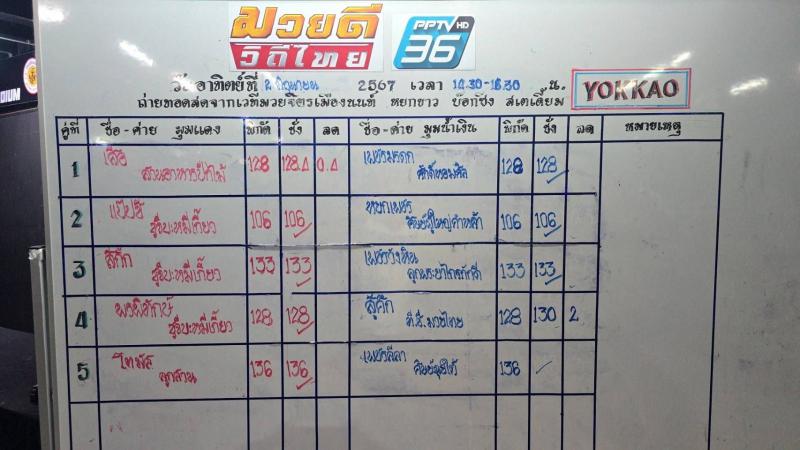 มวยดี
วิถีไทย
PPTV HD
36
วันอาทิตย์ที่ 2 มิถุนายน 2567 เวลา 14.30-16.30 น.
YOKKAO
DIUM
ถ่ายทอดสดจากเวทีมวยจิตรเมืองนนท์ หยกขาว บ๊อกซิ่ง สเตเดี้ยม
คู่ที่ ชื่อ-ค่าย มุมแดง พิกัด ชั่ง ลด ชื่อ-ค่าย มุมน้ำเงิน พิกัด ชั่ง ลด หมายเหตุ
1 เสือ 128 128.4 0.4 เพชรมรดก 128 128
สวนอาหารปีกไม้ ศักดิ์หอมศิล
2 แป๊ปซี่ 106 106 หยกเพชร 106 106
สุริบะหมี่เกี๊ยว
3 133 133 133 133
สุริบะหมี่เกี๊ยว ลูกพระยาไกรภักดี
4 พรพิทักษ์ 128 128 128 130 2
สุริบะหมี่เกี๊ยว ที.ซี.มวยไทย
5 โทมัส 136 136 เพชรลีลา 136
ลูกสวน